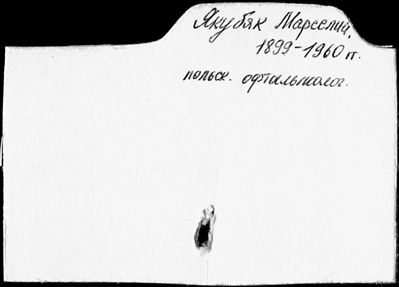 Якубяк Марселий,
1899-1960 гг.
польск. офтальмолог.